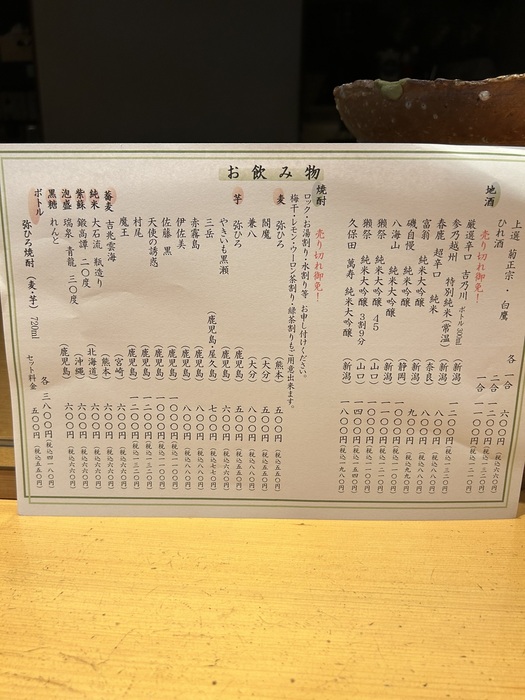 お飲み物
地酒
上選 菊正宗・白鹿 各 一合 六〇〇円(税込六六〇円)
二合 一二〇〇円
ひれ酒 一合
売り切れ御免!
厳選辛口 吉乃川 ボトル300ml
参乃越州 特別純米(常温) (新潟)
春鹿 超辛口 純米 (奈良) 八〇〇円(税込八八〇円)
富翁 純米大吟醸
磯自慢 純米吟醸 (静岡)
八海山 純米大吟醸 (新潟)
獺祭 純米大吟醸 45 (山口)
獺祭 純米大吟醸 3割9分 (山口)
久保田 萬寿 純米大吟醸 (新潟) 一八〇〇円(税込一九八〇円)
焼酎
ロック・お湯割り・水割り等 お申し付けください。
梅干・レモン・ウーロン茶割り・緑茶割りもご用意出来ます。
売り切れ御免!
麦 弥ひろ (熊本) 五〇〇円(税込五五〇円)
閻魔 (大分) 五〇〇円(税込五五〇円)
兼八 (大分) 六〇〇円(税込六六〇円)
芋 弥ひろ (鹿児島) 五〇〇円(税込五五〇円)
やきいも黒瀬 (鹿児島) 六〇〇円(税込六六〇円)
三岳 (鹿児島・屋久島) 七〇〇円(税込七七〇円)
赤霧島 (鹿児島) 八〇〇円(税込八八〇円)
伊佐美 (鹿児島) 八〇〇円(税込八八〇円)
佐藤 黒 (鹿児島) 一〇〇〇円(税込一一〇〇円)
天使の誘惑 (鹿児島) 一〇〇〇円(税込一一〇〇円)
村尾 (鹿児島) 一二〇〇円(税込一三二〇円)
魔王 (鹿児島) 一二〇〇円(税込一三二〇円)
蕎麦 吉兆雲海 (宮崎) 六〇〇円(税込六六〇円)
純米 大石流 瓶造り (熊本) 六〇〇円(税込六六〇円)
紫蘇 鍛高譚 二〇度 (北海道) 六〇〇円(税込六六〇円)
泡盛 瑞泉 青龍 三〇度 (沖縄) 六〇〇円(税込六六〇円)
黒糖 れんと (鹿児島) 六〇〇円(税込六六〇円)
ボトル 弥ひろ焼酎(麦・芋) 720ml 各 三八〇〇円(税込四一八〇円)
セット料金 五〇〇円(税込五五〇円)